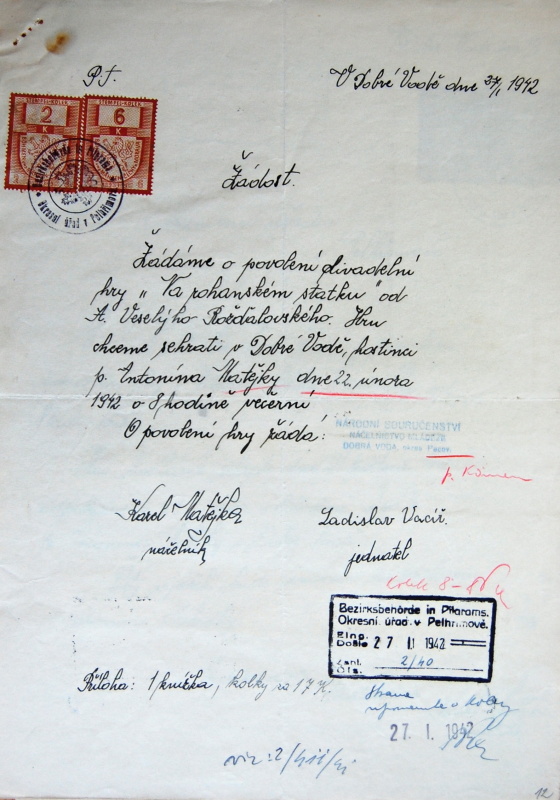 P.T.
V Dobré Vodě dne 27/I 1942
STEMPEL-KOLEK
2
K
STEMPEL-KOLEK
6
K
Okresní úřad v Pelhřimově
Žádost.
Žádáme o povolení divadelní
hry „Na rohanském statku" od
A. Veselýho Rožďalovského. Hru
chceme sehrati v Dobré Vodě, hostinci
p. Antonína Matějky dne 22. února
1942 o 8 hodině večerní
O povolení hry žádá:
NÁRODNÍ SOURUČENSTVÍ
NÁČELNICTVO MLÁDEŽE
DOBRÁ VODA
p. Kámen
Karel Matějka
náčelník
Ladislav Vacíř.
jednatel
8-
Bezirksbehörde in Pilgrams.
Okresní úřad v Pelhřimově.
Eing.
Došlo 27 I 1942
2/40
Čís.
Příloha: 1 knížka, kolky za 17 K.
27. I. 1942
viz: 2/
12